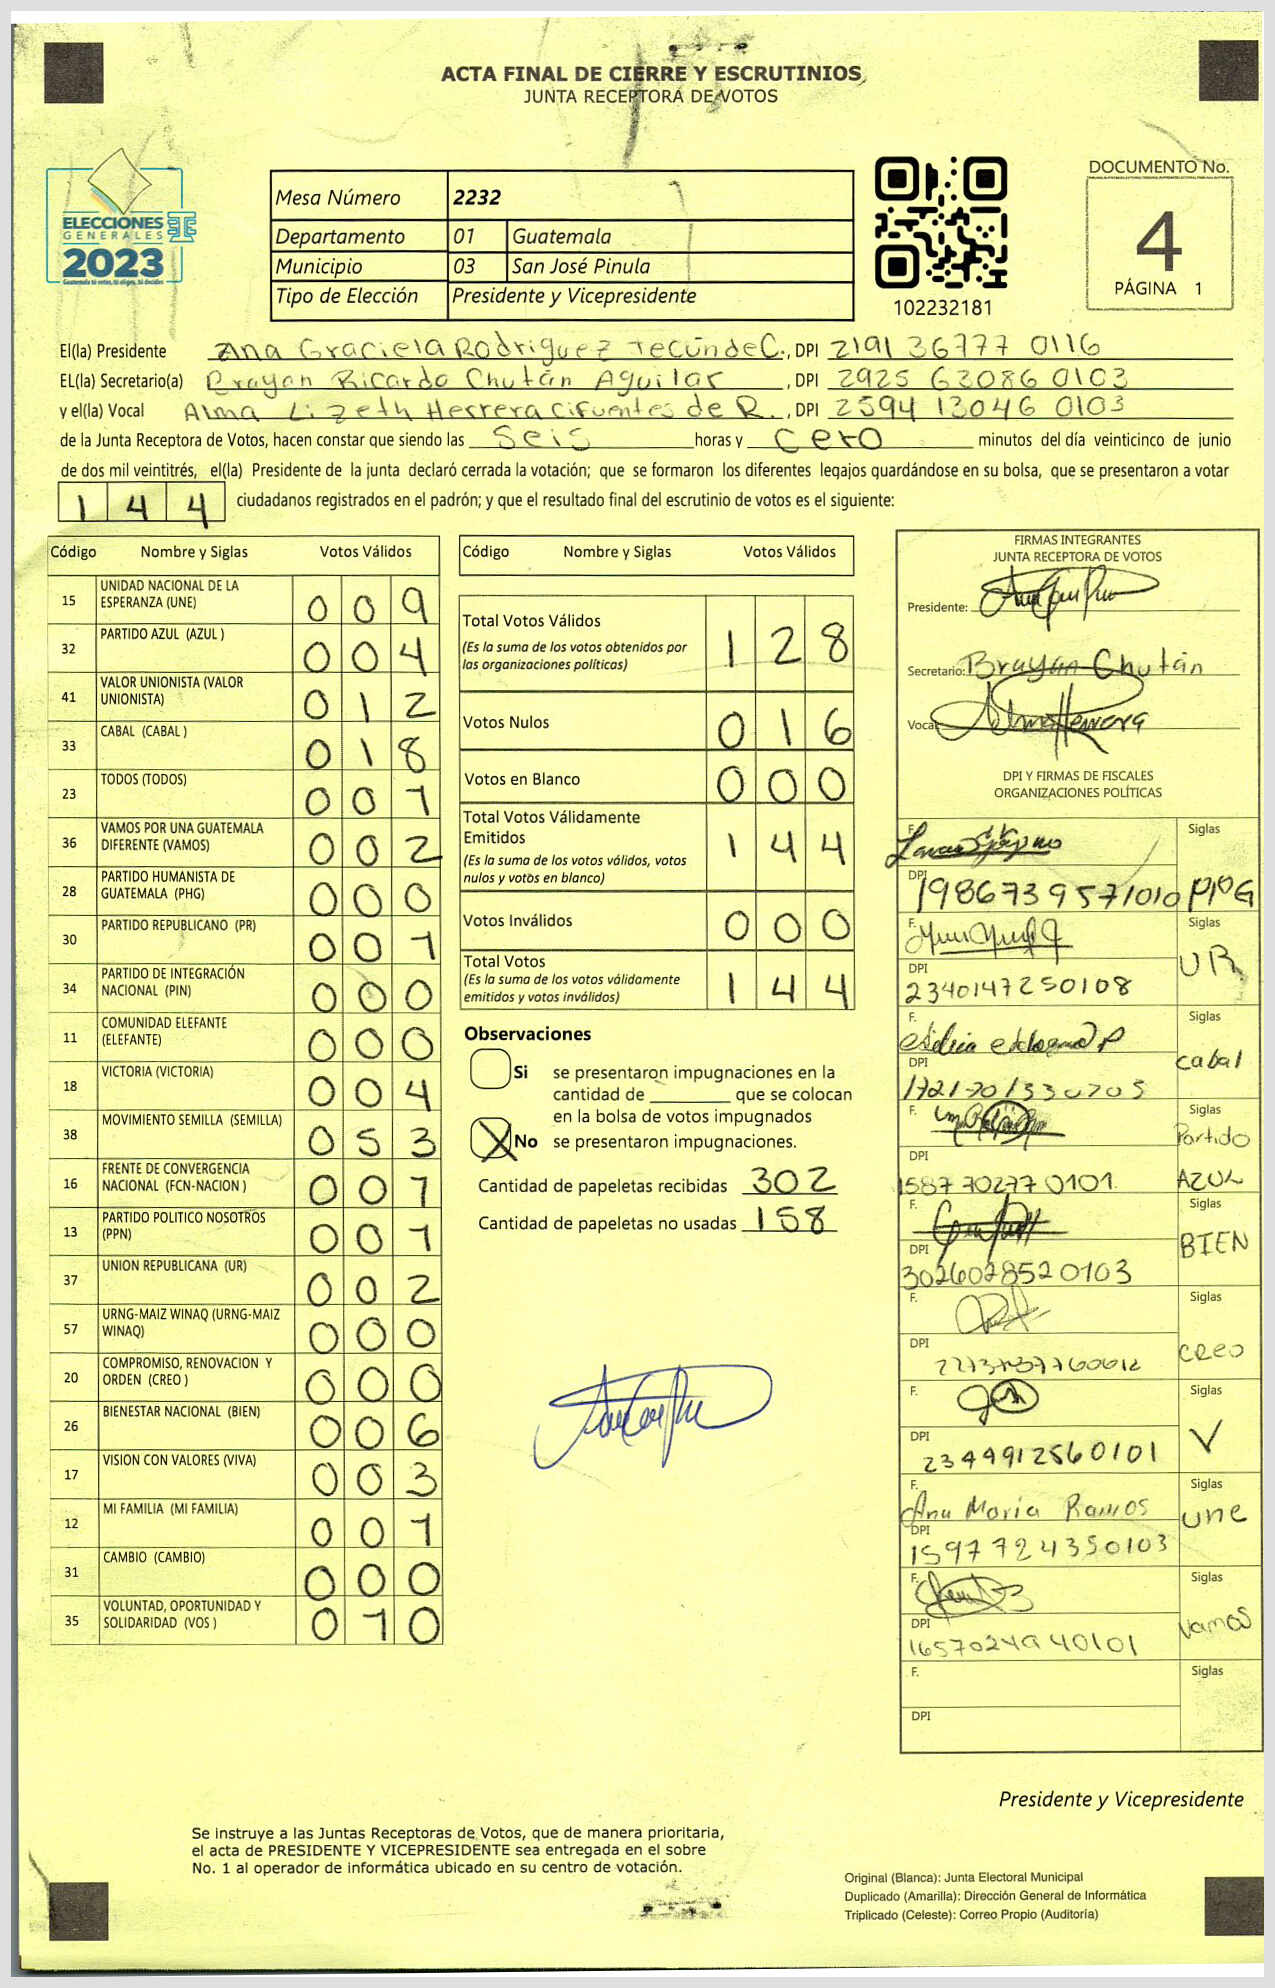 ACTA FINAL DE CIERRE Y ESCRUTINIOS
JUNTA RECEPTORA DE VOTOS
ELECCIONES
GENERALES
2023
Guatemala tú votas, tú eliges, tú decides
Mesa Número 2232
Departamento 01 Guatemala
Municipio 03 San José Pinula
Tipo de Elección Presidente y Vicepresidente
102232181
DOCUMENTO No.
4
PÁGINA 1
El(la) Presidente Ana Graciela Rodriguez Tecúnde C., DPI 2191 36777 0116
EL(la) Secretario(a) Brayan Ricardo Chután Aguilar, DPI 2925 63086 0103
y el(la) Vocal Alma Lizeth Herrera Cifuentes de R., DPI 2594 13046 0103
de la Junta Receptora de Votos, hacen constar que siendo las seis horas y cero minutos del día veinticinco de junio
de dos mil veintitrés, el(la) Presidente de la junta declaró cerrada la votación; que se formaron los diferentes legajos guardándose en su bolsa, que se presentaron a votar
144 ciudadanos registrados en el padrón; y que el resultado final del escrutinio de votos es el siguiente:
Código Nombre y Siglas Votos Válidos
15 UNIDAD NACIONAL DE LA ESPERANZA (UNE) 009
32 PARTIDO AZUL (AZUL ) 004
41 VALOR UNIONISTA (VALOR UNIONISTA) 012
33 CABAL (CABAL ) 018
23 TODOS (TODOS) 001
36 VAMOS POR UNA GUATEMALA DIFERENTE (VAMOS) 002
28 PARTIDO HUMANISTA DE GUATEMALA (PHG) 000
30 PARTIDO REPUBLICANO (PR) 001
34 PARTIDO DE INTEGRACIÓN NACIONAL (PIN) 000
11 COMUNIDAD ELEFANTE (ELEFANTE) 000
18 VICTORIA (VICTORIA) 004
38 MOVIMIENTO SEMILLA (SEMILLA) 053
16 FRENTE DE CONVERGENCIA NACIONAL (FCN-NACION ) 001
13 PARTIDO POLITICO NOSOTROS (PPN) 001
37 UNION REPUBLICANA (UR) 002
57 URNG-MAIZ WINAQ (URNG-MAIZ WINAQ) 000
20 COMPROMISO, RENOVACION Y ORDEN (CREO ) 000
26 BIENESTAR NACIONAL (BIEN) 006
17 VISION CON VALORES (VIVA) 003
12 MI FAMILIA (MI FAMILIA) 001
31 CAMBIO (CAMBIO) 000
35 VOLUNTAD, OPORTUNIDAD Y SOLIDARIDAD (VOS ) 010
Código Nombre y Siglas Votos Válidos
Total Votos Válidos 128
(Es la suma de los votos obtenidos por
las organizaciones políticas)
Votos Nulos 016
Votos en Blanco 000
Total Votos Válidamente
Emitidos 144
(Es la suma de los votos válidos, votos
nulos y votos en blanco)
Votos Inválidos 000
Total Votos 144
(Es la suma de los votos válidamente
emitidos y votos inválidos)
Observaciones
Si se presentaron impugnaciones en la
cantidad de ________ que se colocan
en la bolsa de votos impugnados
No se presentaron impugnaciones.
Cantidad de papeletas recibidas 302
Cantidad de papeletas no usadas 158
FIRMAS INTEGRANTES
JUNTA RECEPTORA DE VOTOS
Presidente:
Secretario: Brayan Chután
Vocal:
DPI Y FIRMAS DE FISCALES
ORGANIZACIONES POLÍTICAS
F. Siglas
DPI 1986739571010
F. Siglas UR
DPI 2340147250108
F. Siglas cabal
DPI
F. Siglas Partido AZUL
DPI 1587702770101
F. Siglas BIEN
DPI 3026028520103
F. Siglas creo
DPI
F. Siglas V
DPI 2344912560101
F. Ana Maria Ramos Siglas une
DPI 1597724350103
F. Siglas Vamos
DPI
F. Siglas
DPI
Presidente y Vicepresidente
Se instruye a las Juntas Receptoras de Votos, que de manera prioritaria,
el acta de PRESIDENTE Y VICEPRESIDENTE sea entregada en el sobre
No. 1 al operador de informática ubicado en su centro de votación.
Original (Blanca): Junta Electoral Municipal
Duplicado (Amarilla): Dirección General de Informática
Triplicado (Celeste): Correo Propio (Auditoría)